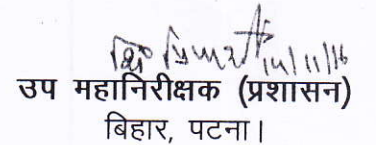 14/11/16
उप महानिरीक्षक (प्रशासन)
बिहार, पटना।